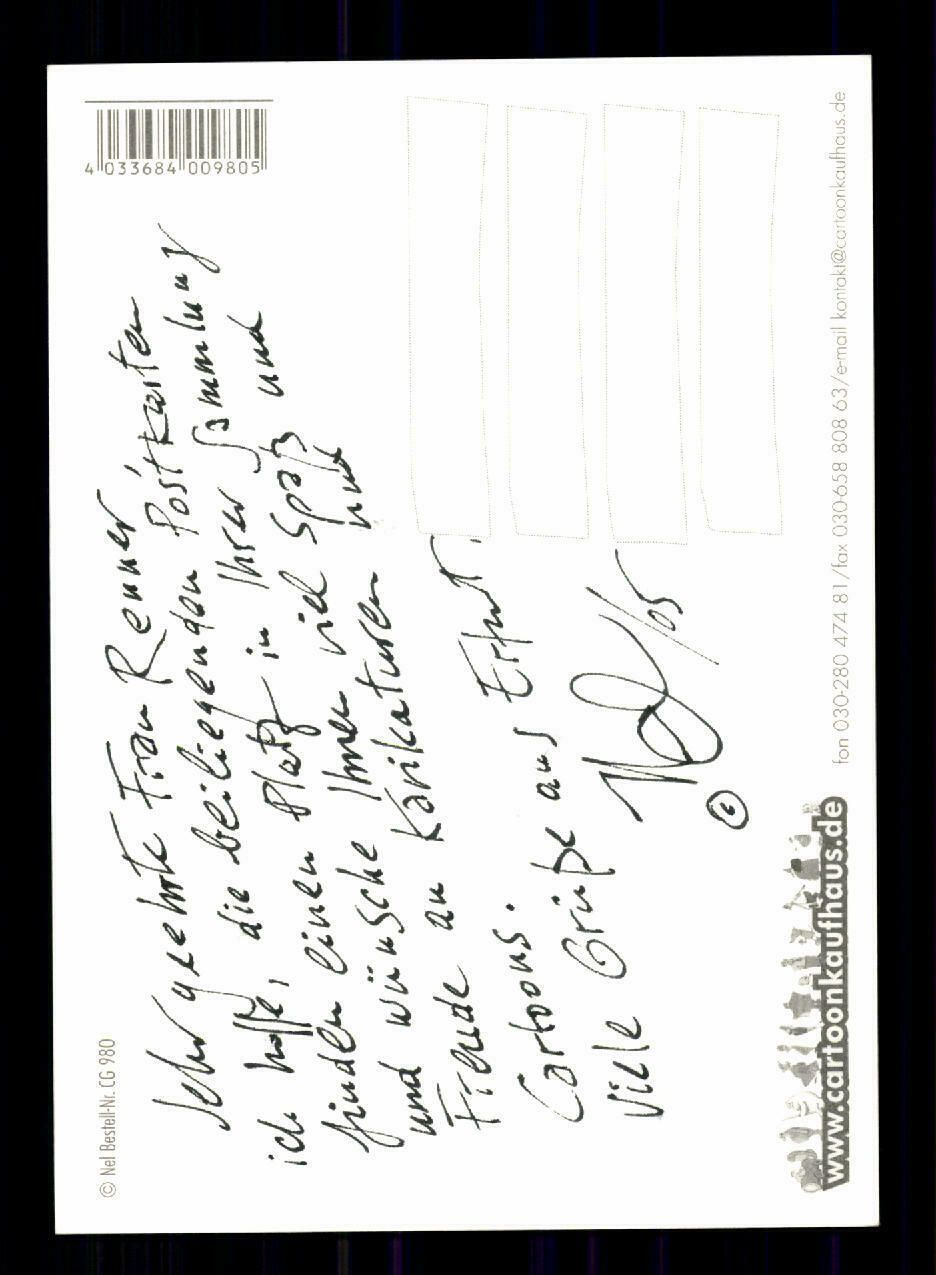 © Nel Bestell-Nr. CG 980
4 033684 009805
Sehr geehrte Frau Renner,
ich hoffe, die beiliegenden Postkarten
finden einen Platz in Ihrer Sammlung
und wünsche Ihnen viel Spaß und
Freude an Karikaturen und
Cartoons.
Viele Grüße aus Erfurt,
Nel/05
©
www.cartoonkaufhaus.de
fon 030-280 474 81/fax 030-658 808 63/e-mail kontakt@cartoonkaufhaus.de